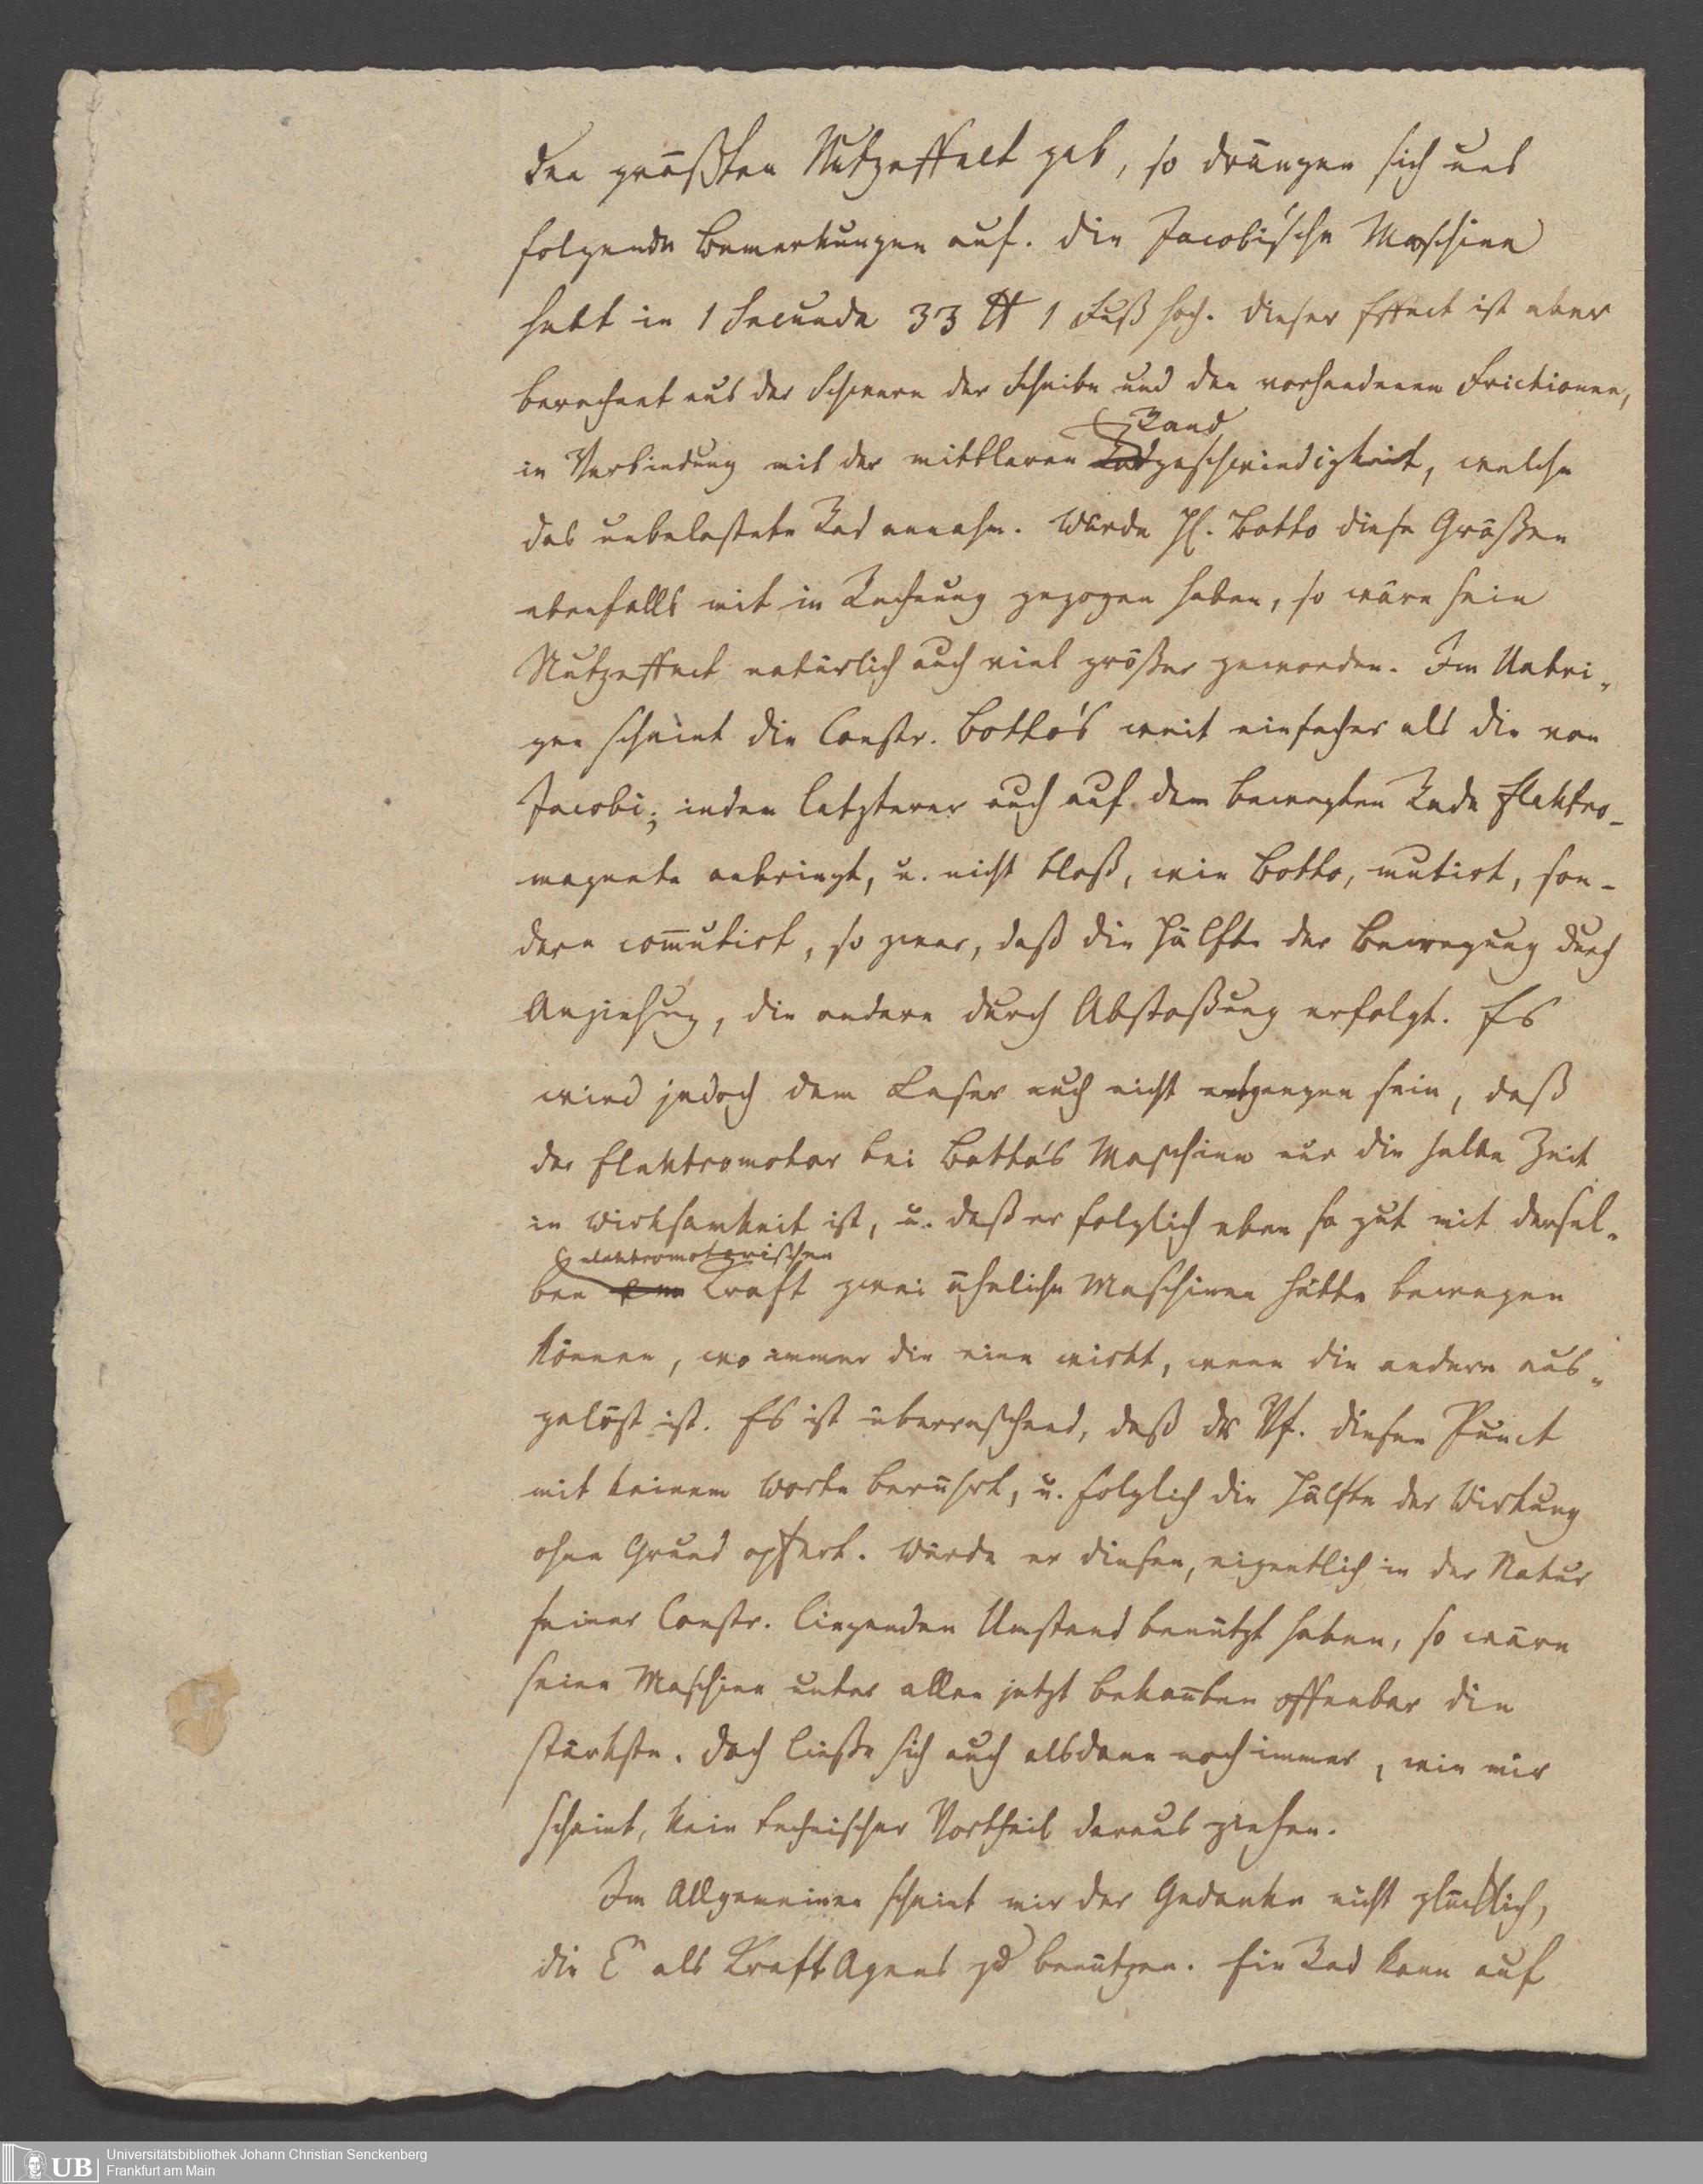 den größten Nutzeffect gab, so drängen sich uns
folgende Bemerkungen auf. Die Jacobi'sche Maschine
hebt in 1 Secunde 33 ℔ 1 Fuß hoch. Dieser Effect ist aber
berechnet aus der Schwere der Scheibe und den vorhandenen Frictionen,
Rand
in Verbindung mit der mittleren Radgeschwindigkeit, welche
das unbelastete Rad annahm. Würde H. Botto diese Größen
ebenfalls mit in Rechnung gezogen haben, so wäre sein
Nutzeffect natürlich auch viel größer geworden. Im Uebri-
gen scheint die Constr. Botto's weit einfacher als die von
Jacobi; indem letzterer auch auf dem bewegten Rade Elektro-
magnete anbringt, u. nicht bloß, wie Botto, mutirt, son-
dern com̅utirt, so zwar, daß die Hälfte der Bewegung durch
Anziehung, die andere durch Abstoßung erfolgt. Es
wird jedoch dem Leser auch nicht entgangen sein, daß
der Elektromotor bei Botto's Maschine nur die halbe Zeit
in Wirksamkeit ist, u. daß er folglich eben so gut mit dersel-
elektromotorischen
ben Kraft zwei ähnliche Maschinen hätte bewegen
können, wo immer die eine wirkt, wenn die andere aus-
gelöst ist. Es ist überraschend, daß der Vf. diesen Punct
mit keinem Worte berührt, u. folglich die Hälfte der Wirkung
ohne Grund opfert. Würde er diesen, eigentlich in der Natur
seiner Constr. liegenden Umstand benützt haben, so wäre
seine Maschine unter allen jetzt bekan̅ten offenbar die
stärkste. Doch ließe sich auch alsdann noch immer, wie mir
scheint, kein technischer Vortheil daraus ziehen.
Im Allgemeinen scheint mir der Gedanke nicht glücklich,
die als Kraft Agens zu benützen. Ein Rad kann auf
Universitätsbibliothek Johann Christian Senckenberg
Frankfurt am Main
UB